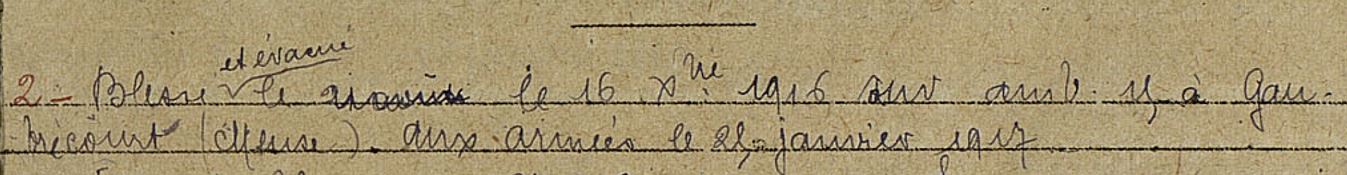 et évacué
2 - Blessé le le 16 Xbre 1916 sur amb. à Gau-
brécourt (Meuse). aux armées le janvier 1917